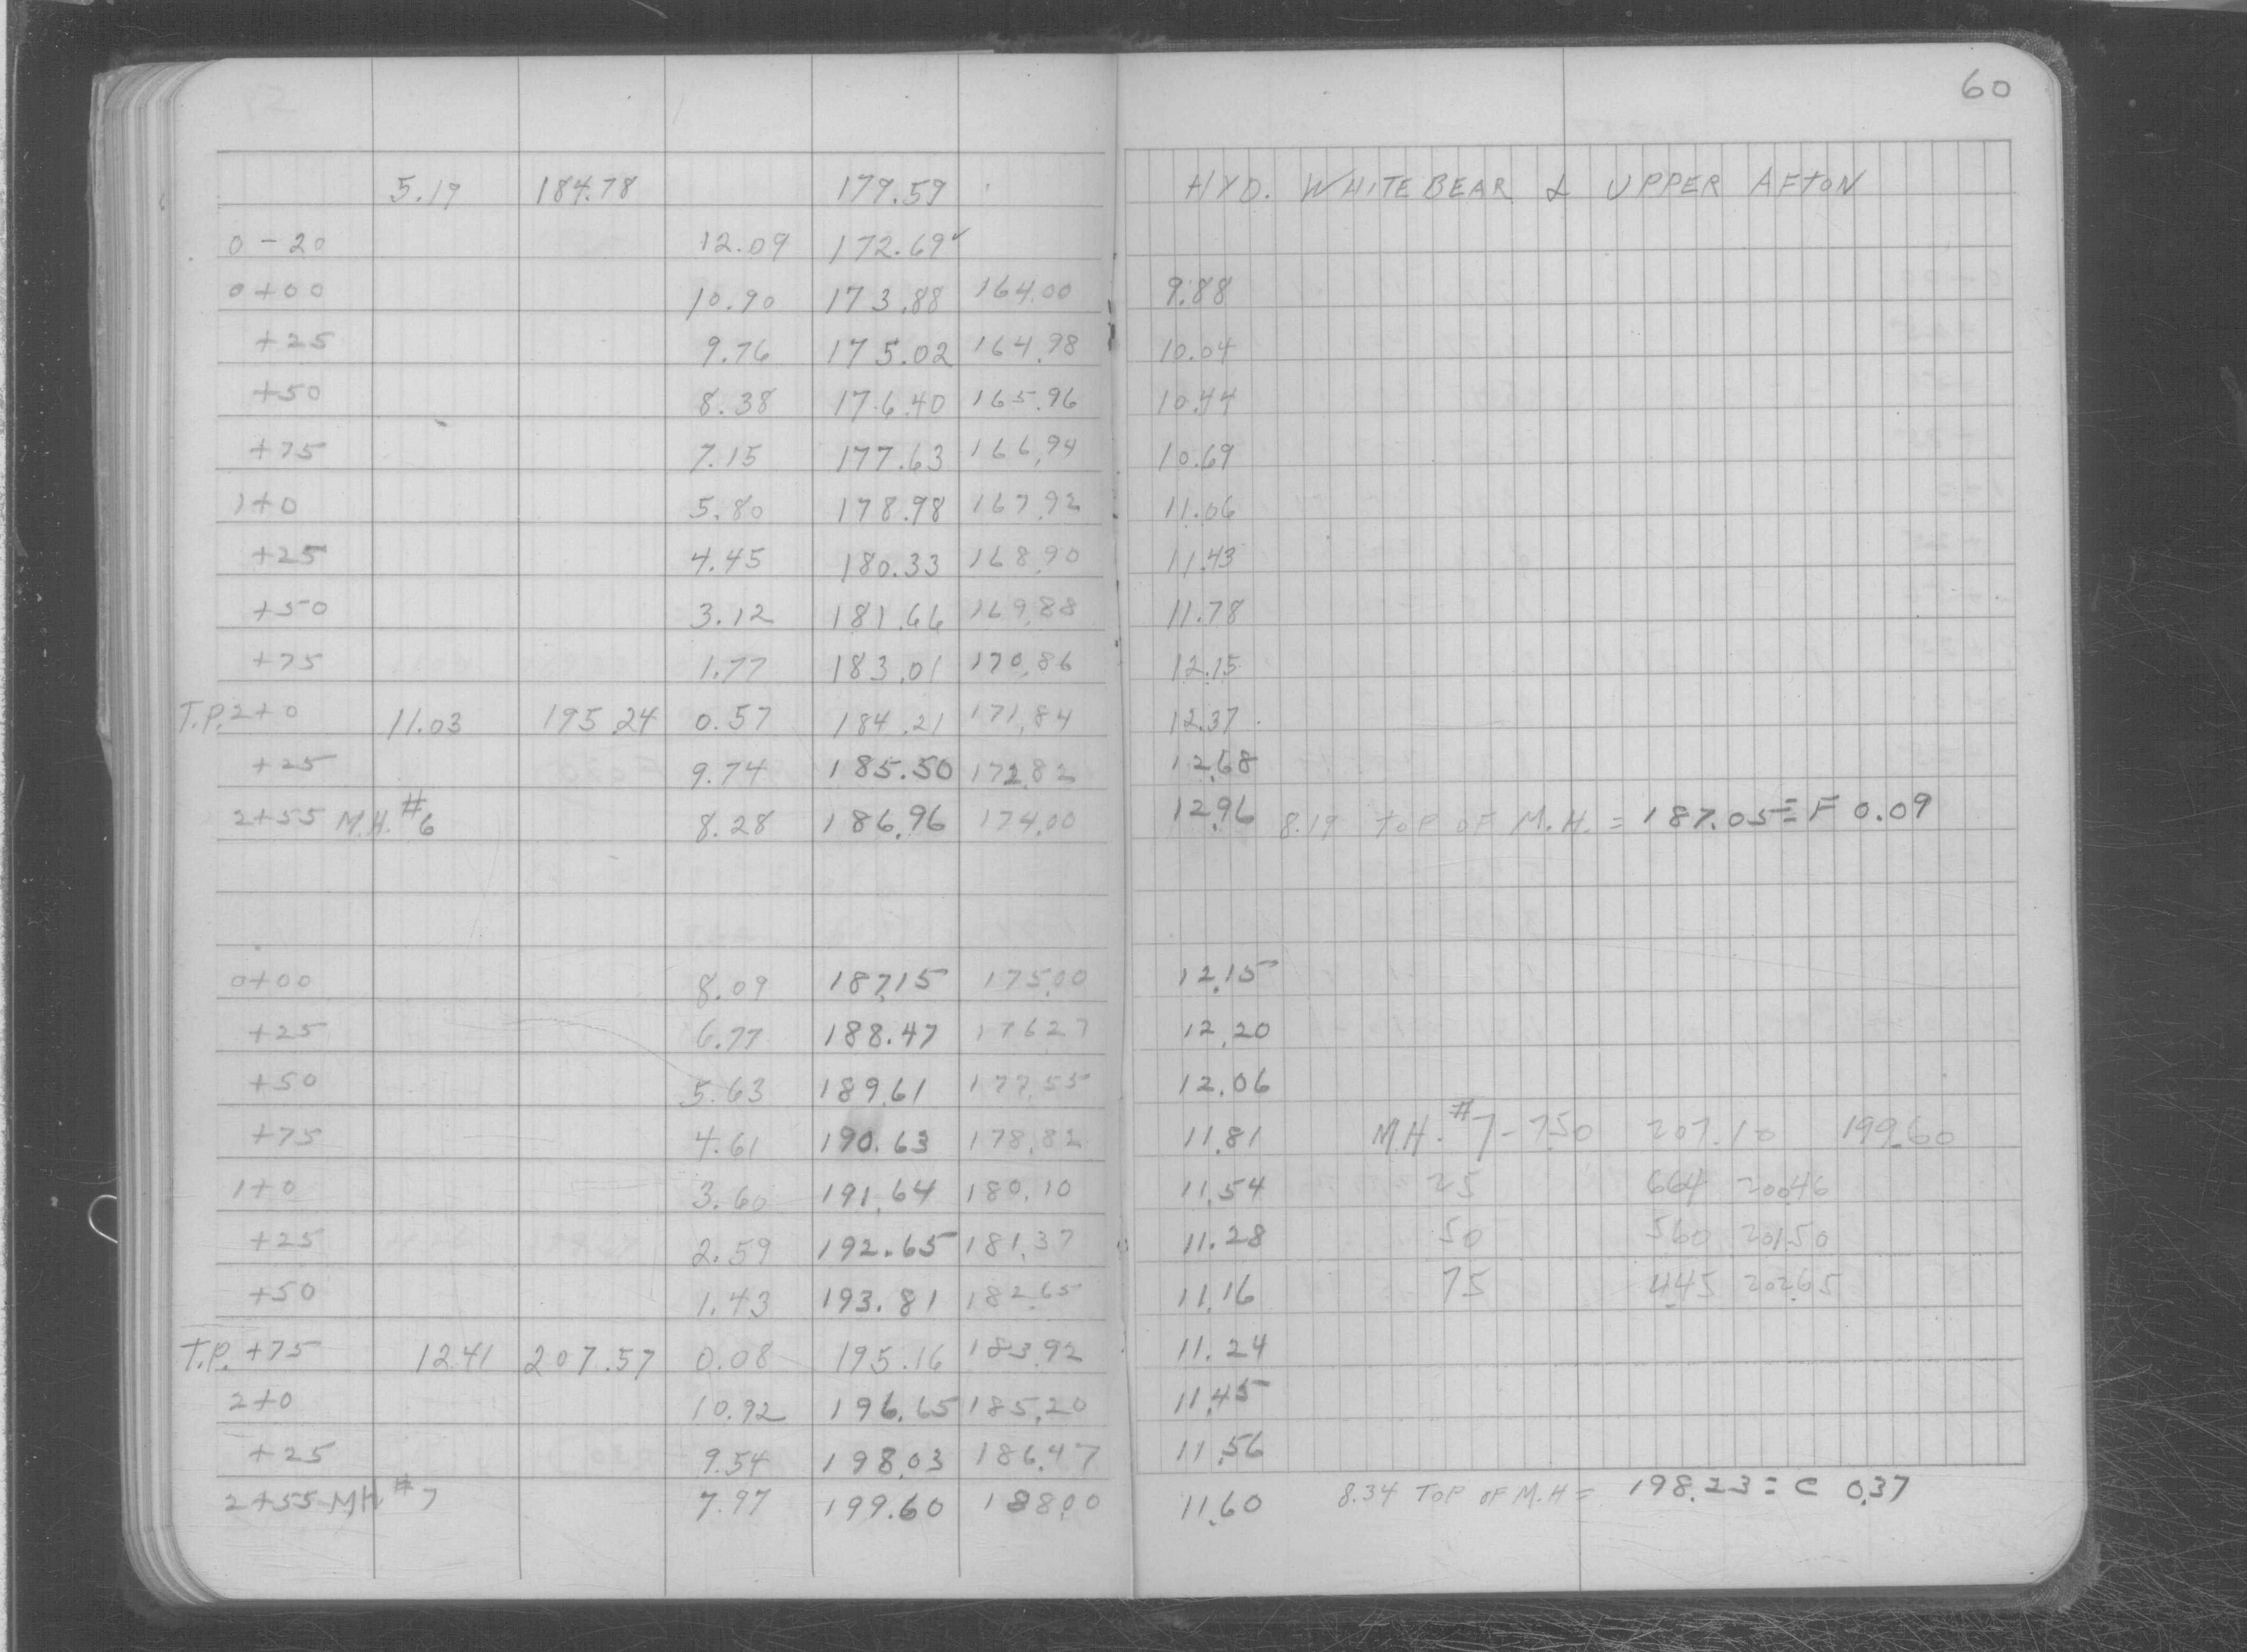 60
5.19 184.78 179.59 HYD. WHITE BEAR & UPPER AFTON
0-20 12.09 172.69✓
0+00 10.90 173.88 164.00 9.88
+25 9.76 175.02 164.98 10.04
+50 8.38 176.40 165.96 10.44
+75 7.15 177.63 166.94 10.69
1+0 5.80 178.98 167.92 11.06
+25 4.45 180.33 168.90 11.43
+50 3.12 181.66 169.88 11.78
+75 1.77 183.01 170.86 12.15
T.P. 2+0 11.03 195.24 0.57 184.21 171.84 12.37
+25 9.74 185.50 172.82 12.68
2+55 M.H. #6 8.28 186.96 174.00 12.96 8.19 TOP OF M.H. = 187.05 = F 0.09
0+00 8.09 187.15 175.00 12.15
+25 6.77 188.47 176.27 12.20
+50 5.63 189.61 177.55 12.06
+75 4.61 190.63 178.82 11.81 M.H. #7- 7.50 207.10 199.60
1+0 3.60 191.64 180.10 11.54 25 664 200.46
+25 2.59 192.65 181.37 11.28 50 560 201.50
+50 1.43 193.81 182.65 11.16 75 4.45 202.65
T.P. +75 12.41 207.57 0.08 195.16 183.92 11.24
2+0 10.92 196.65 185.20 11.45
+25 9.54 198.03 186.47 11.56
2+55 MH #7 7.97 199.60 188.00 11.60 8.34 TOP OF M.H = 198.23 = C 0.37